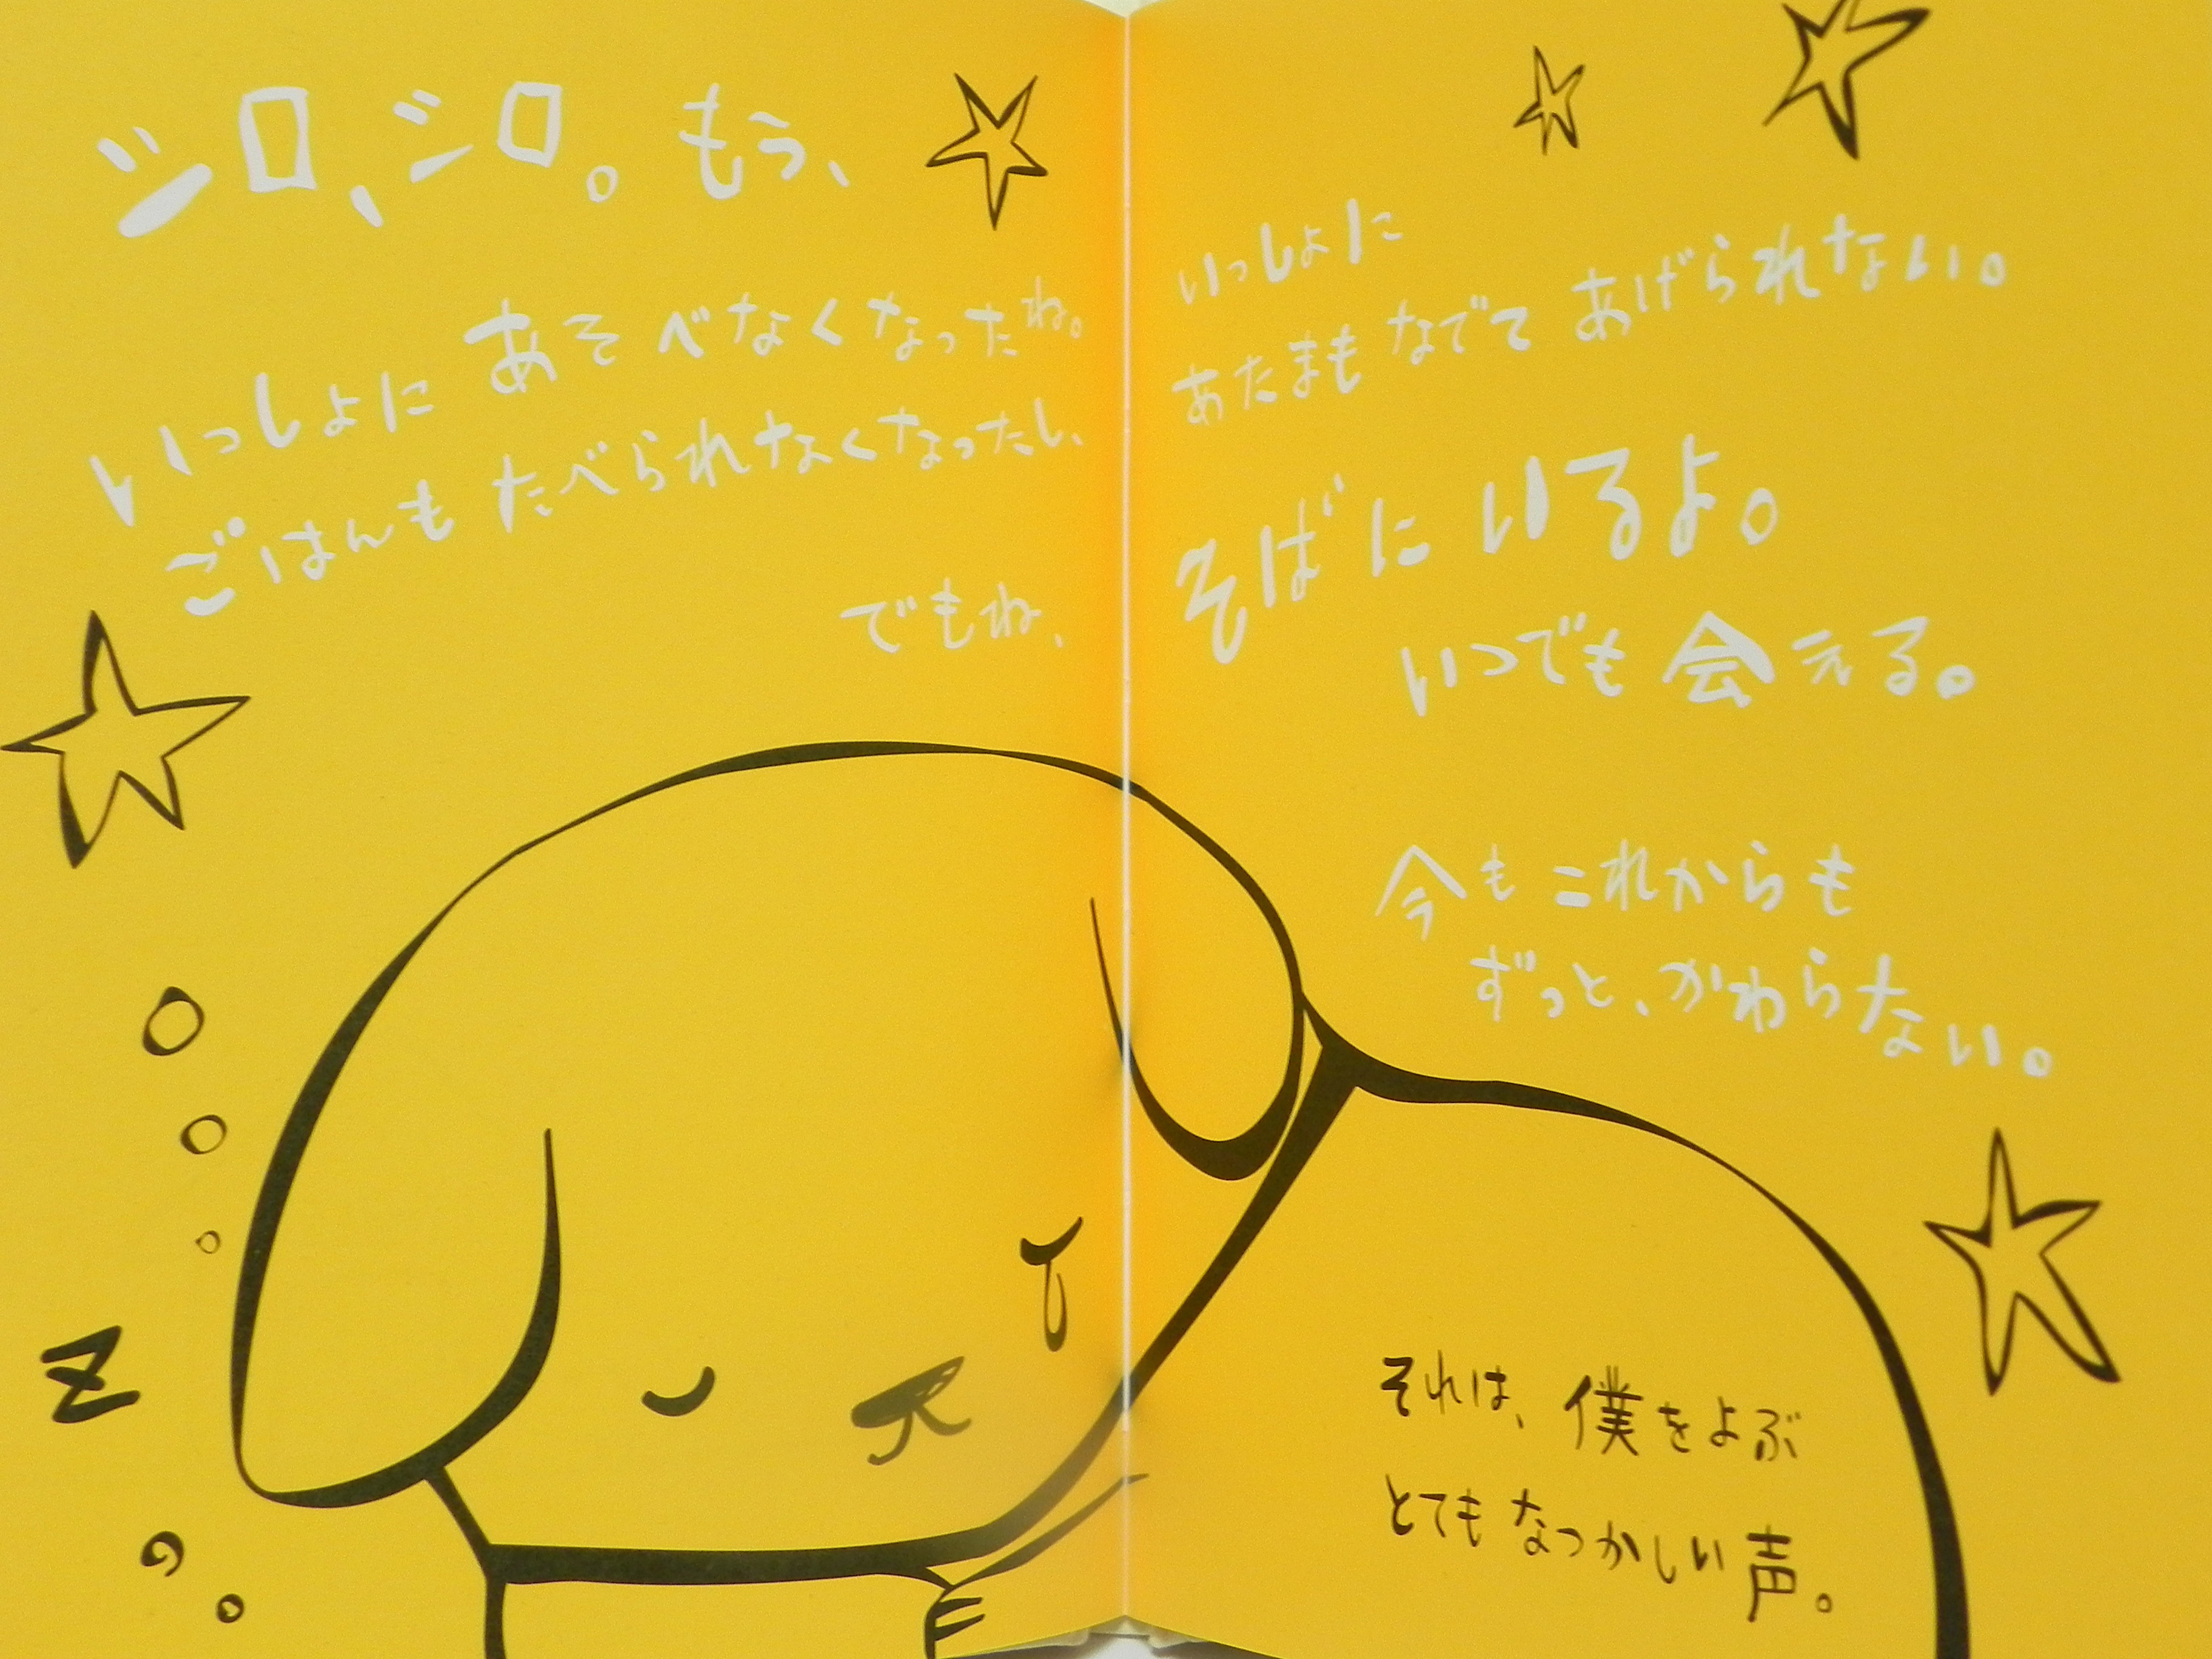 シロ、シロ。もう、
いっしょに あそべなくなったね。
ごはんも たべられなくなったし、
いっしょに
あたまも なでて あげられない。
でもね、
そばに いるよ。
いつでも 会える。
今も これからも
ずっと、かわらない。
Z
それは、僕をよぶ
とても なつかしい 声。